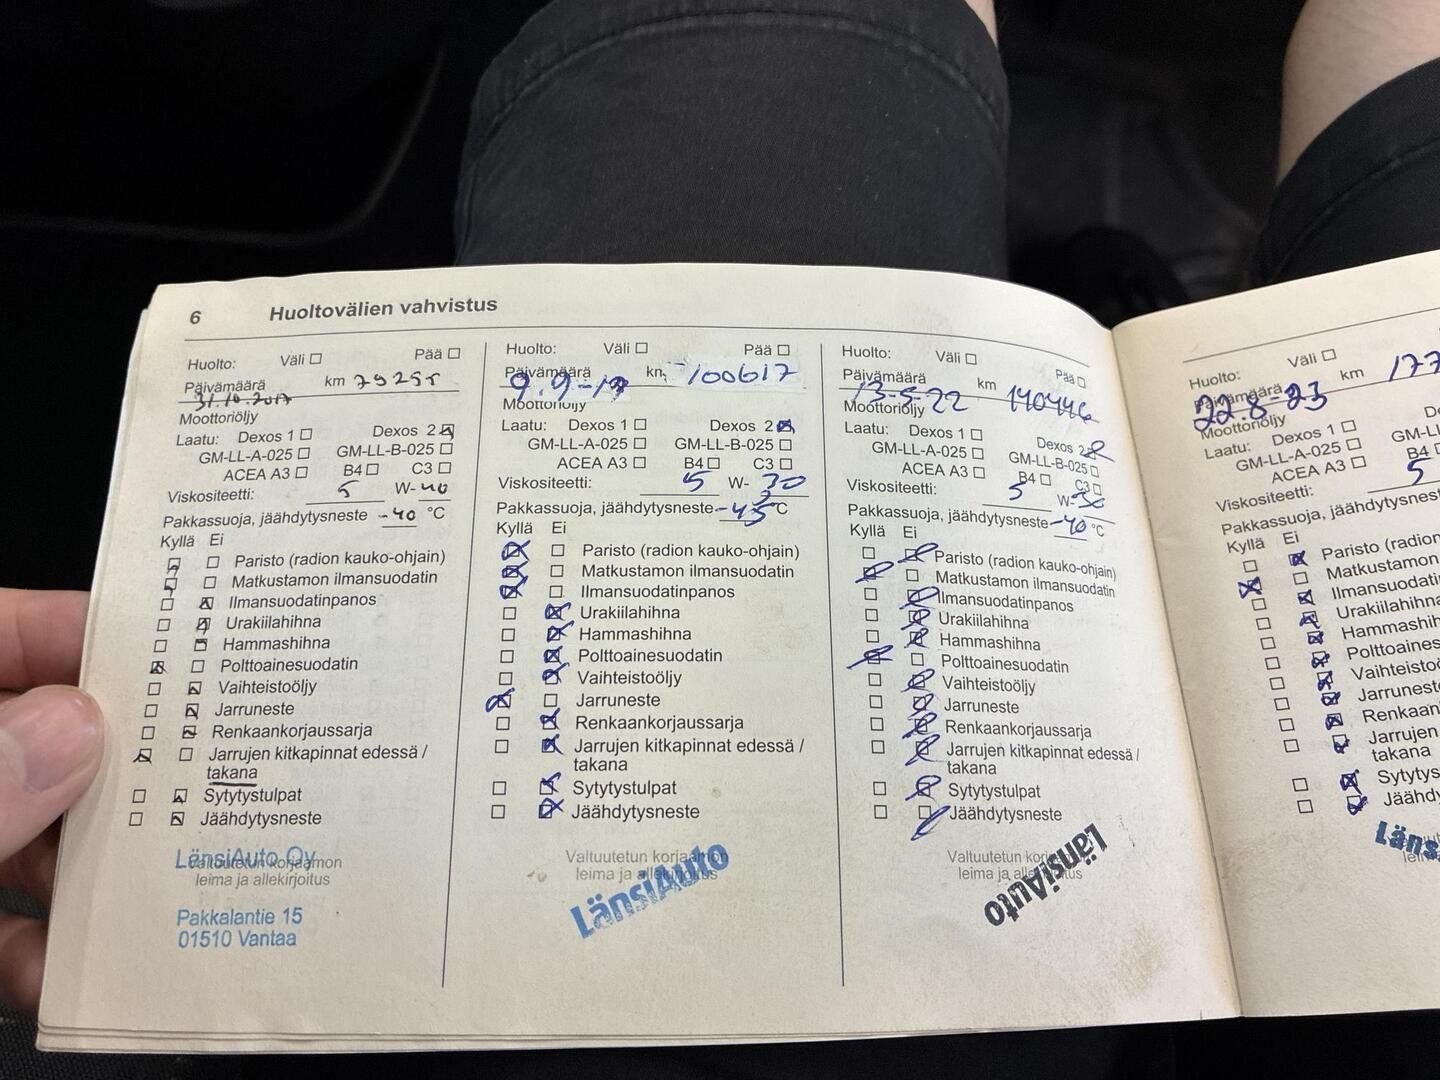 6 Huoltovälien vahvistus
Huolto: Väli Pää
Päivämäärä km 79255
31.10.2017
Moottoriöljy
Laatu: Dexos 1 Dexos 2
GM-LL-A-025 GM-LL-B-025
ACEA A3 B4 C3
Viskositeetti: 5 W-40
Pakkassuoja, jäähdytysneste -40 °C
Kyllä Ei
Paristo (radion kauko-ohjain)
Matkustamon ilmansuodatin
Ilmansuodatinpanos
Urakiilahihna
Hammashihna
Polttoainesuodatin
Vaihteistoöljy
Jarruneste
Renkaankorjaussarja
Jarrujen kitkapinnat edessä /
takana
Sytytystulpat
Jäähdytysneste
LänsiAuto Oy
Valtuutetun korjaamon
leima ja allekirjoitus
Pakkalantie 15
01510 Vantaa
Huolto: Väli Pää
Päivämäärä km 100617
9.9-19
Moottoriöljy
Laatu: Dexos 1 Dexos 2
GM-LL-A-025 GM-LL-B-025
ACEA A3 B4 C3
Viskositeetti: 5 W-30
Pakkassuoja, jäähdytysneste °C
Kyllä Ei
Paristo (radion kauko-ohjain)
Matkustamon ilmansuodatin
Ilmansuodatinpanos
Urakiilahihna
Hammashihna
Polttoainesuodatin
Vaihteistoöljy
Jarruneste
Renkaankorjaussarja
Jarrujen kitkapinnat edessä /
takana
Sytytystulpat
Jäähdytysneste
Valtuutetun korjaamon
leima ja allekirjoitus
LänsiAuto
Huolto: Väli Pää
Päivämäärä km 140446
13-5-22
Moottoriöljy
Laatu: Dexos 1 Dexos 2
GM-LL-A-025 GM-LL-B-025
ACEA A3 B4 C3
Viskositeetti: 5 W-30
Pakkassuoja, jäähdytysneste -40 °C
Kyllä Ei
Paristo (radion kauko-ohjain)
Matkustamon ilmansuodatin
Ilmansuodatinpanos
Urakiilahihna
Hammashihna
Polttoainesuodatin
Vaihteistoöljy
Jarruneste
Renkaankorjaussarja
Jarrujen kitkapinnat edessä /
takana
Sytytystulpat
Jäähdytysneste
Valtuutetun korjaamon
leima ja allekirjoitus
LänsiAuto
Huolto: Väli
Päivämäärä km 177
22.8-23
Moottoriöljy
Laatu: Dexos 1 De
GM-LL-A-025 GM-LL
ACEA A3 B4
Viskositeetti: 5
Pakkassuoja, jäähdytysnest
Kyllä Ei
Paristo (radion
Matkustamon
Ilmansuodati
Urakiilahihna
Hammashih
Polttoainesu
Vaihteistoö
Jarrunest
Renkaan
Jarrujen
takana
Sytytys
Jäähdy
Läns